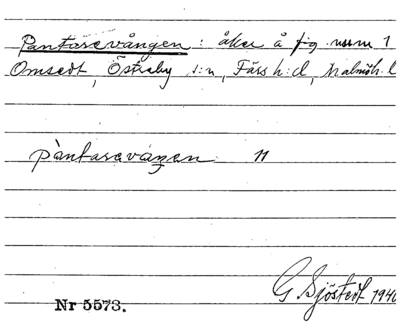 Pantarevången : åker å fig. num 1
Omsedt, Östraby s:n, Färs h:d, Malmöh. l
pàntaravàŋen 11
G Sjöstedt 1940
Nr 5573.